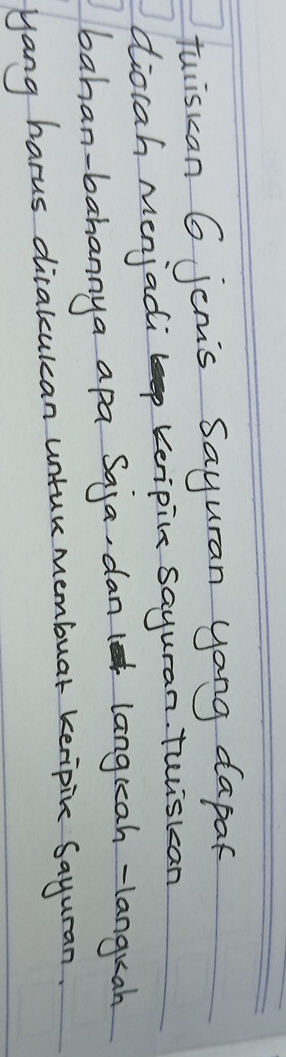 tuliskan 6 jenis sayuran yang dapat
diolah menjadi keripik sayuran. Tuliskan
bahan-bahannya apa saja, dan langkah-langkah
yang harus dilakukan untuk membuat keripik sayuran.